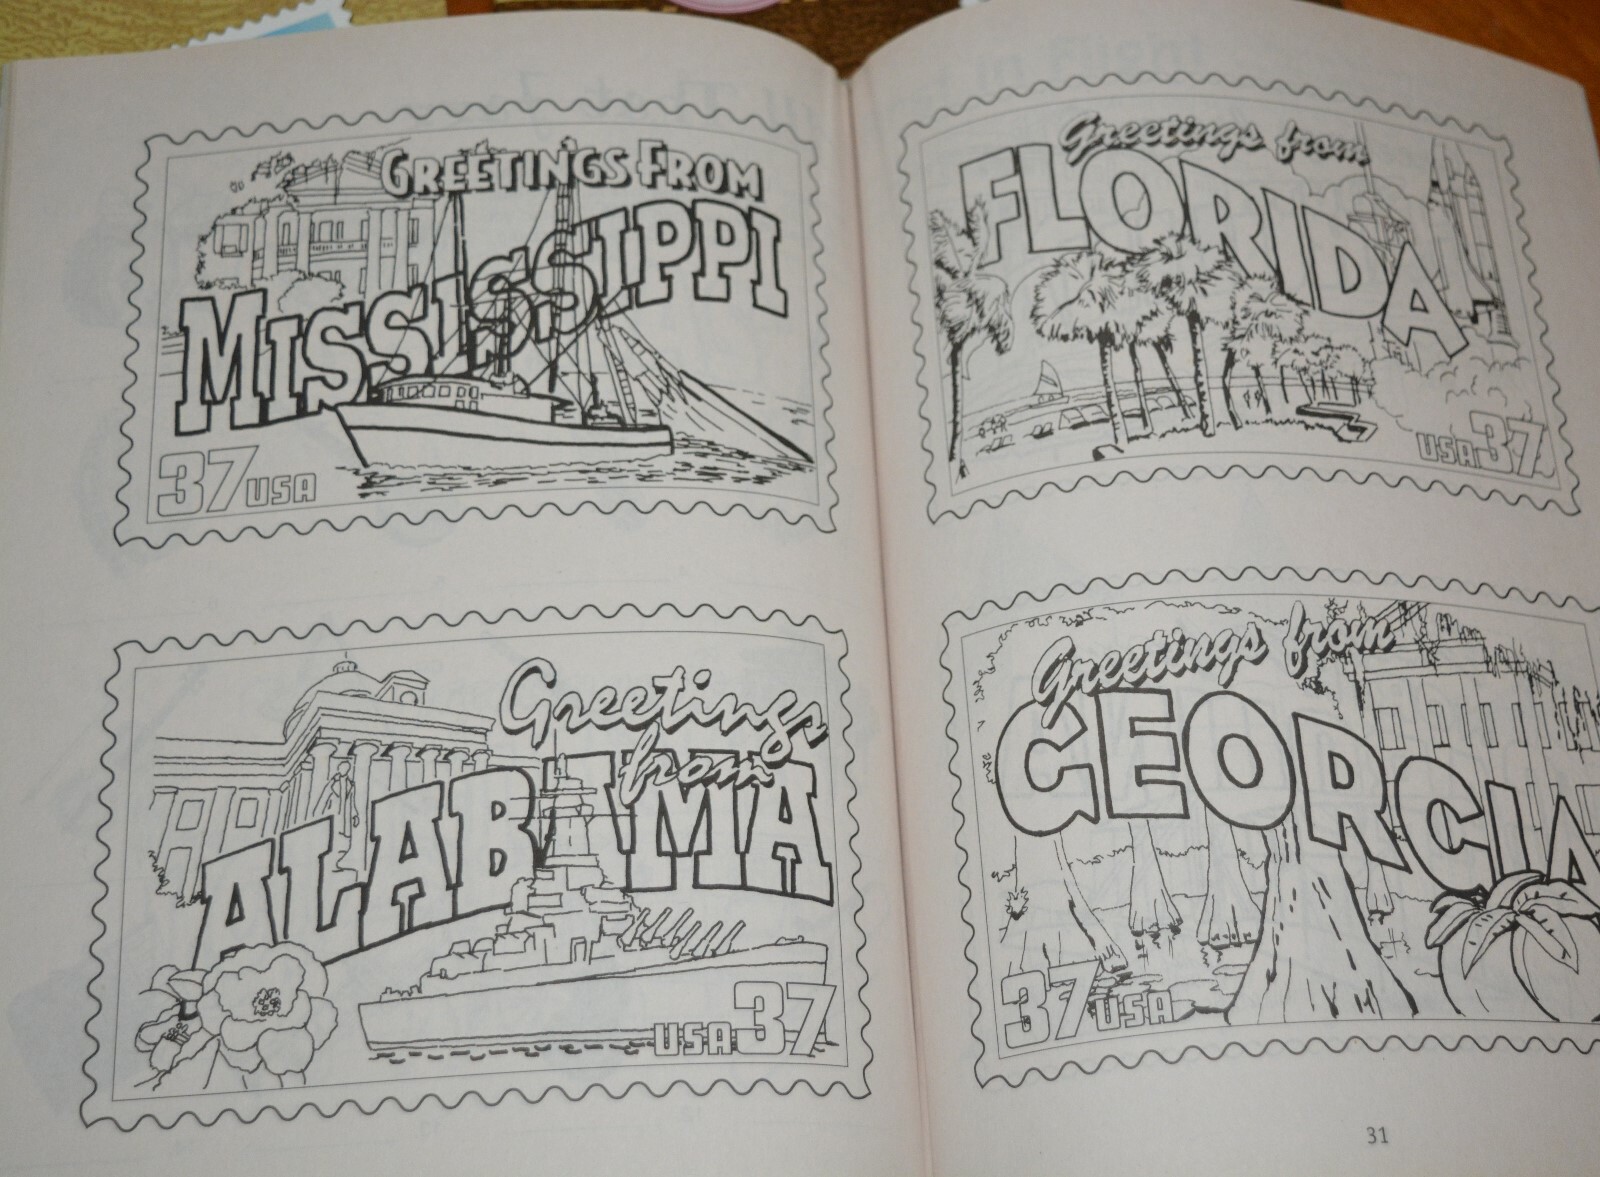 GREETINGS FROM
MISSISSIPPI
37 USA
Greetings
from
ALABAMA
USA 37
Greetings from
FLORIDA
USA 37
Greetings from
GEORGIA
37 USA
31